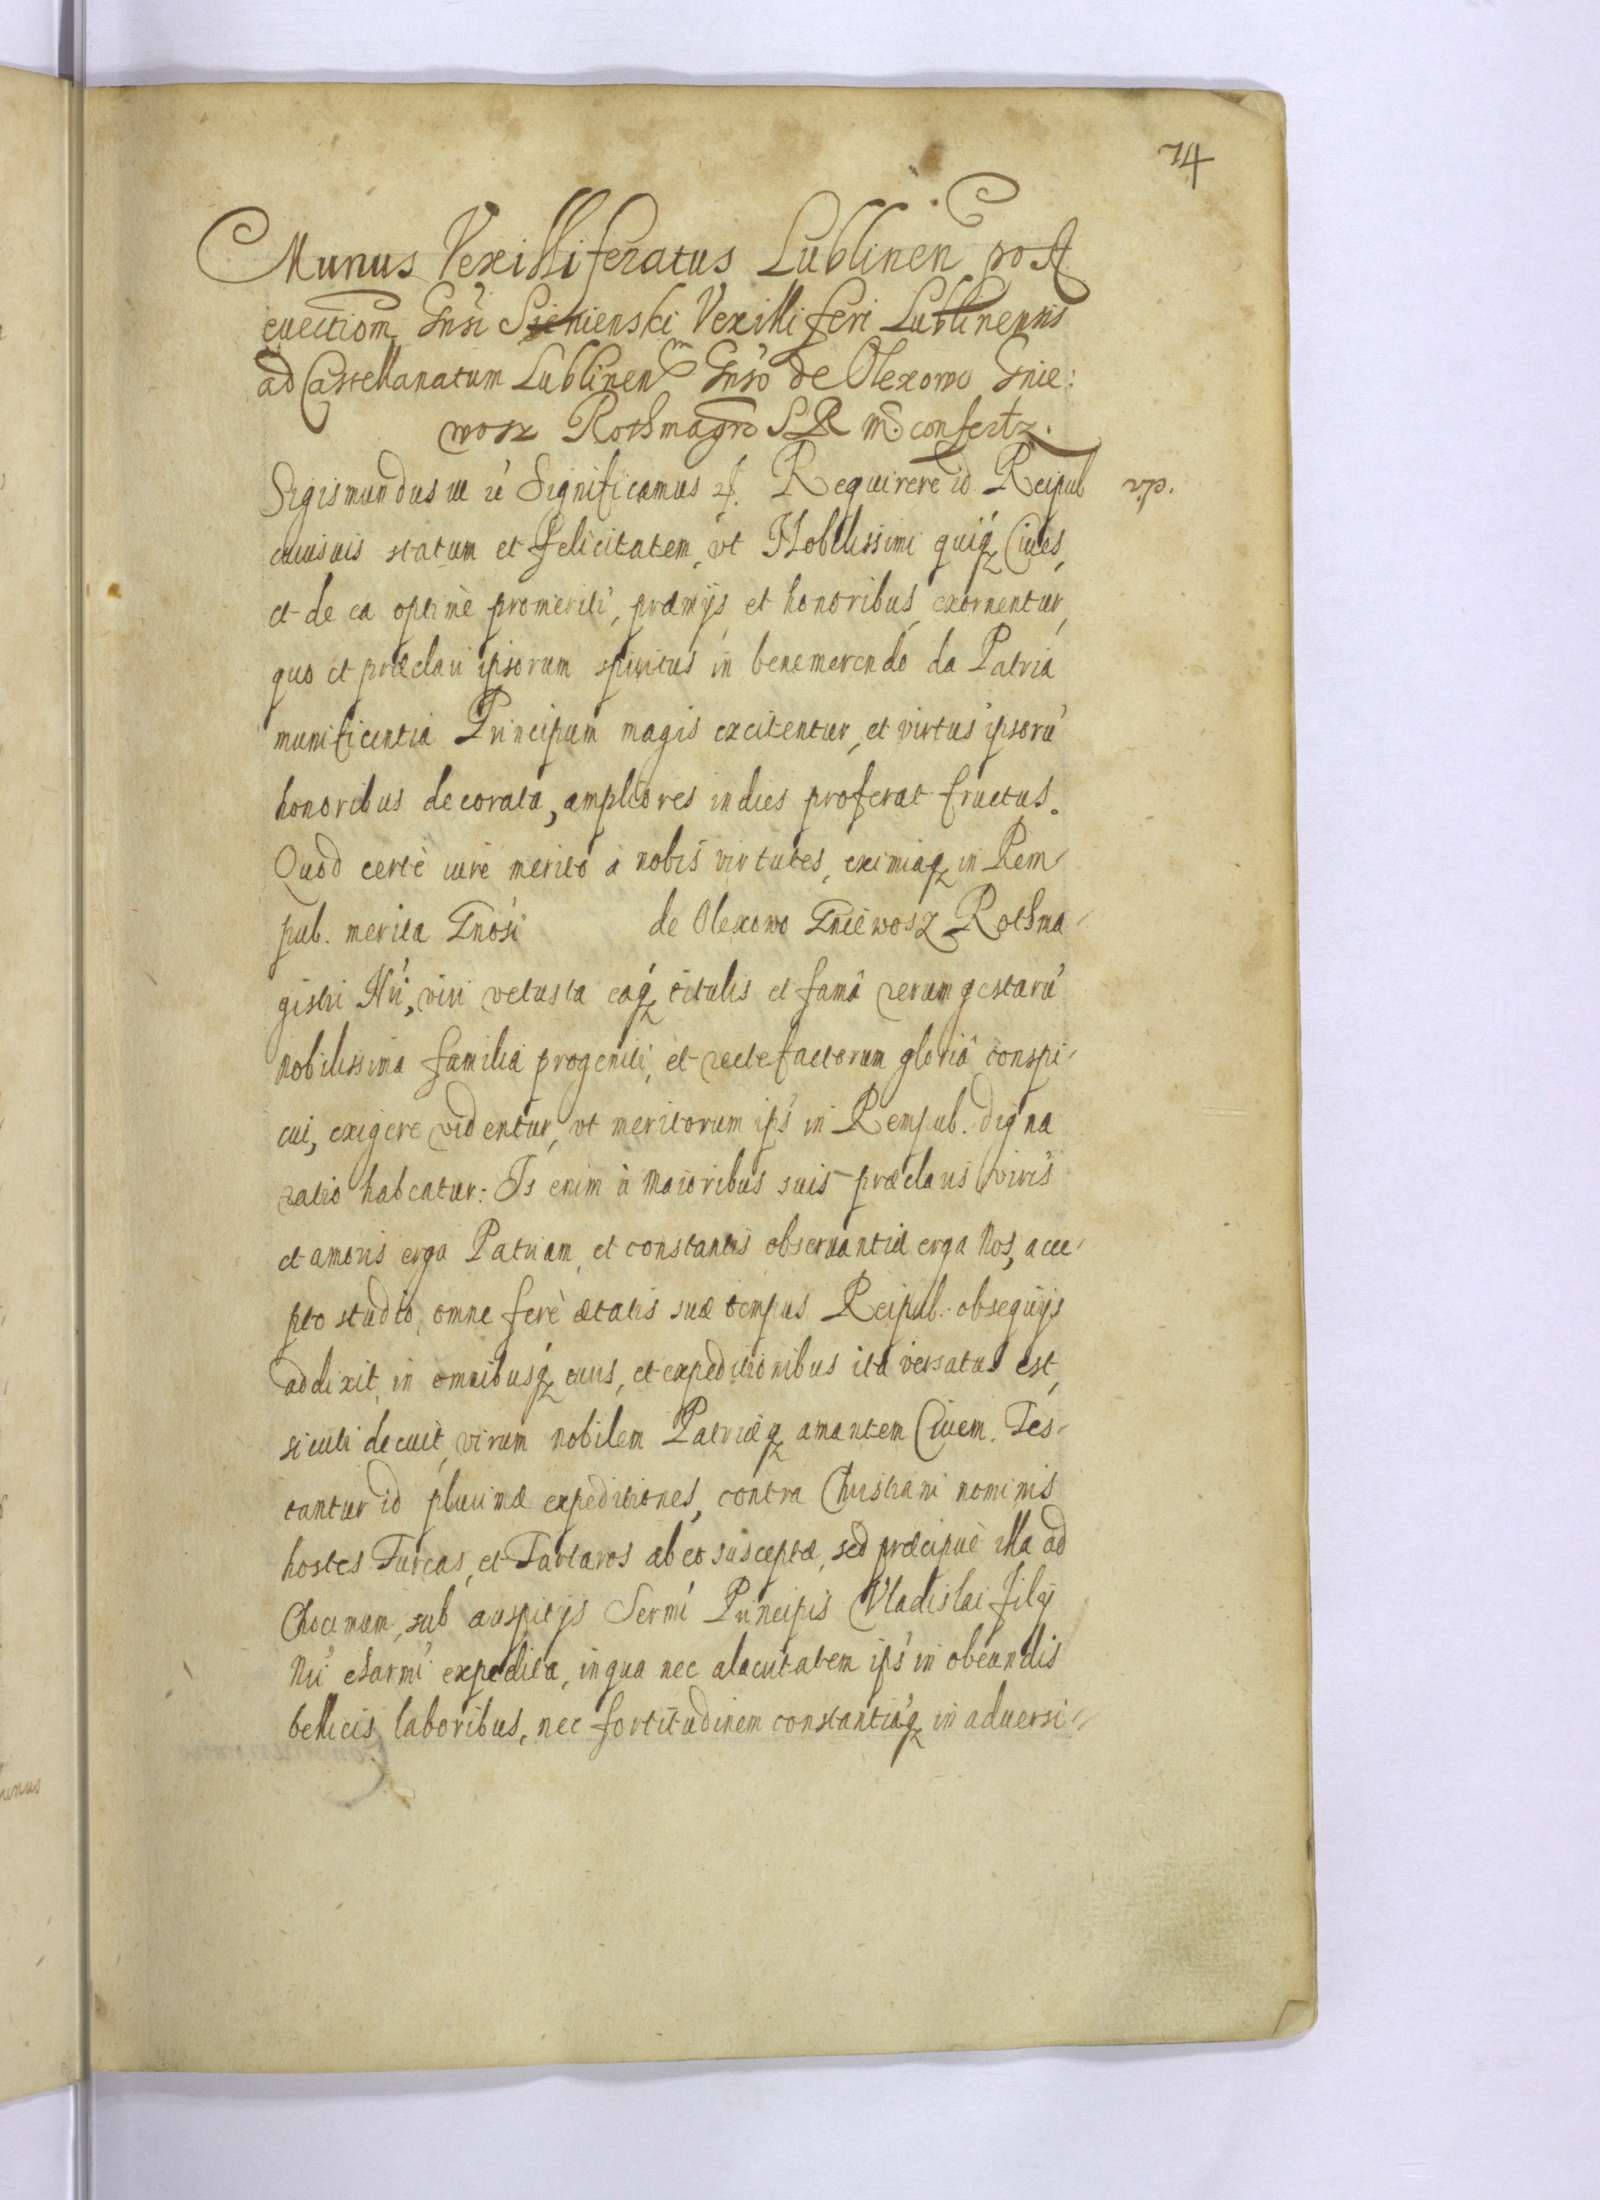 74
Munus Vexilliferatus Lublinen post
euectiom Gnsi Sienienski Vexilliferi Lublinensis
ad Castellanatum Lublinen Gnso de Olexowo Gnie:
wosz Rothmagro S R M. confertz.
Sigismundus III &c Significamus &c. Requirere id Reipub
cuiusuis statum et felicitatem, vt Nobilissimi quiq Ciues,
et de ea optimè promeriti, præmijs et honoribus exornentur,
quo et præclari ipsorum spiritus in benemerendo da Patria
munificentia Principum magis excitentur, et virtus ipsorú
honoribus decorata, ampliores indies proferat fructus.
Quod certè iure merito à nobis virtutes, eximiaq in Rem
pub. merita Gnosi de Olexowo Gniewosz Rothma-
gistri Nri, viri vetusta eaq titulis et famâ rerum gestarú
nobilissima familia progeniti, et rectefactorum gloriâ conspi-
cui, exigere videntur, vt meritorum ips in Rempub. digna
ratio habeatur: Is enim à Maioribus suis præclaris viris
et amoris erga Patriam, et constantis obseruantiæ erga Nos, acce-
pto studio, omne ferè ætatis suæ tempus Reipub. obsequijs
addixit, in omnibusq eius, et expeditionibus ita versatus est,
sicuti decuit, virum nobilem Patriæq amantem Ciuem. Tes-
tantur id plurimæ expeditiones, contra Christiani nominis
hostes Turcas, et Tartaros ab eo susceptæ, sed præcipuè illa ad
Chocimum, sub auspitijs Sermi Principis Vladislai filij
Nri charmi expedita, in qua nec alacritatem ips in obeundis
bellicis laboribus, nec fortitudinem constantiáq in aduersi-